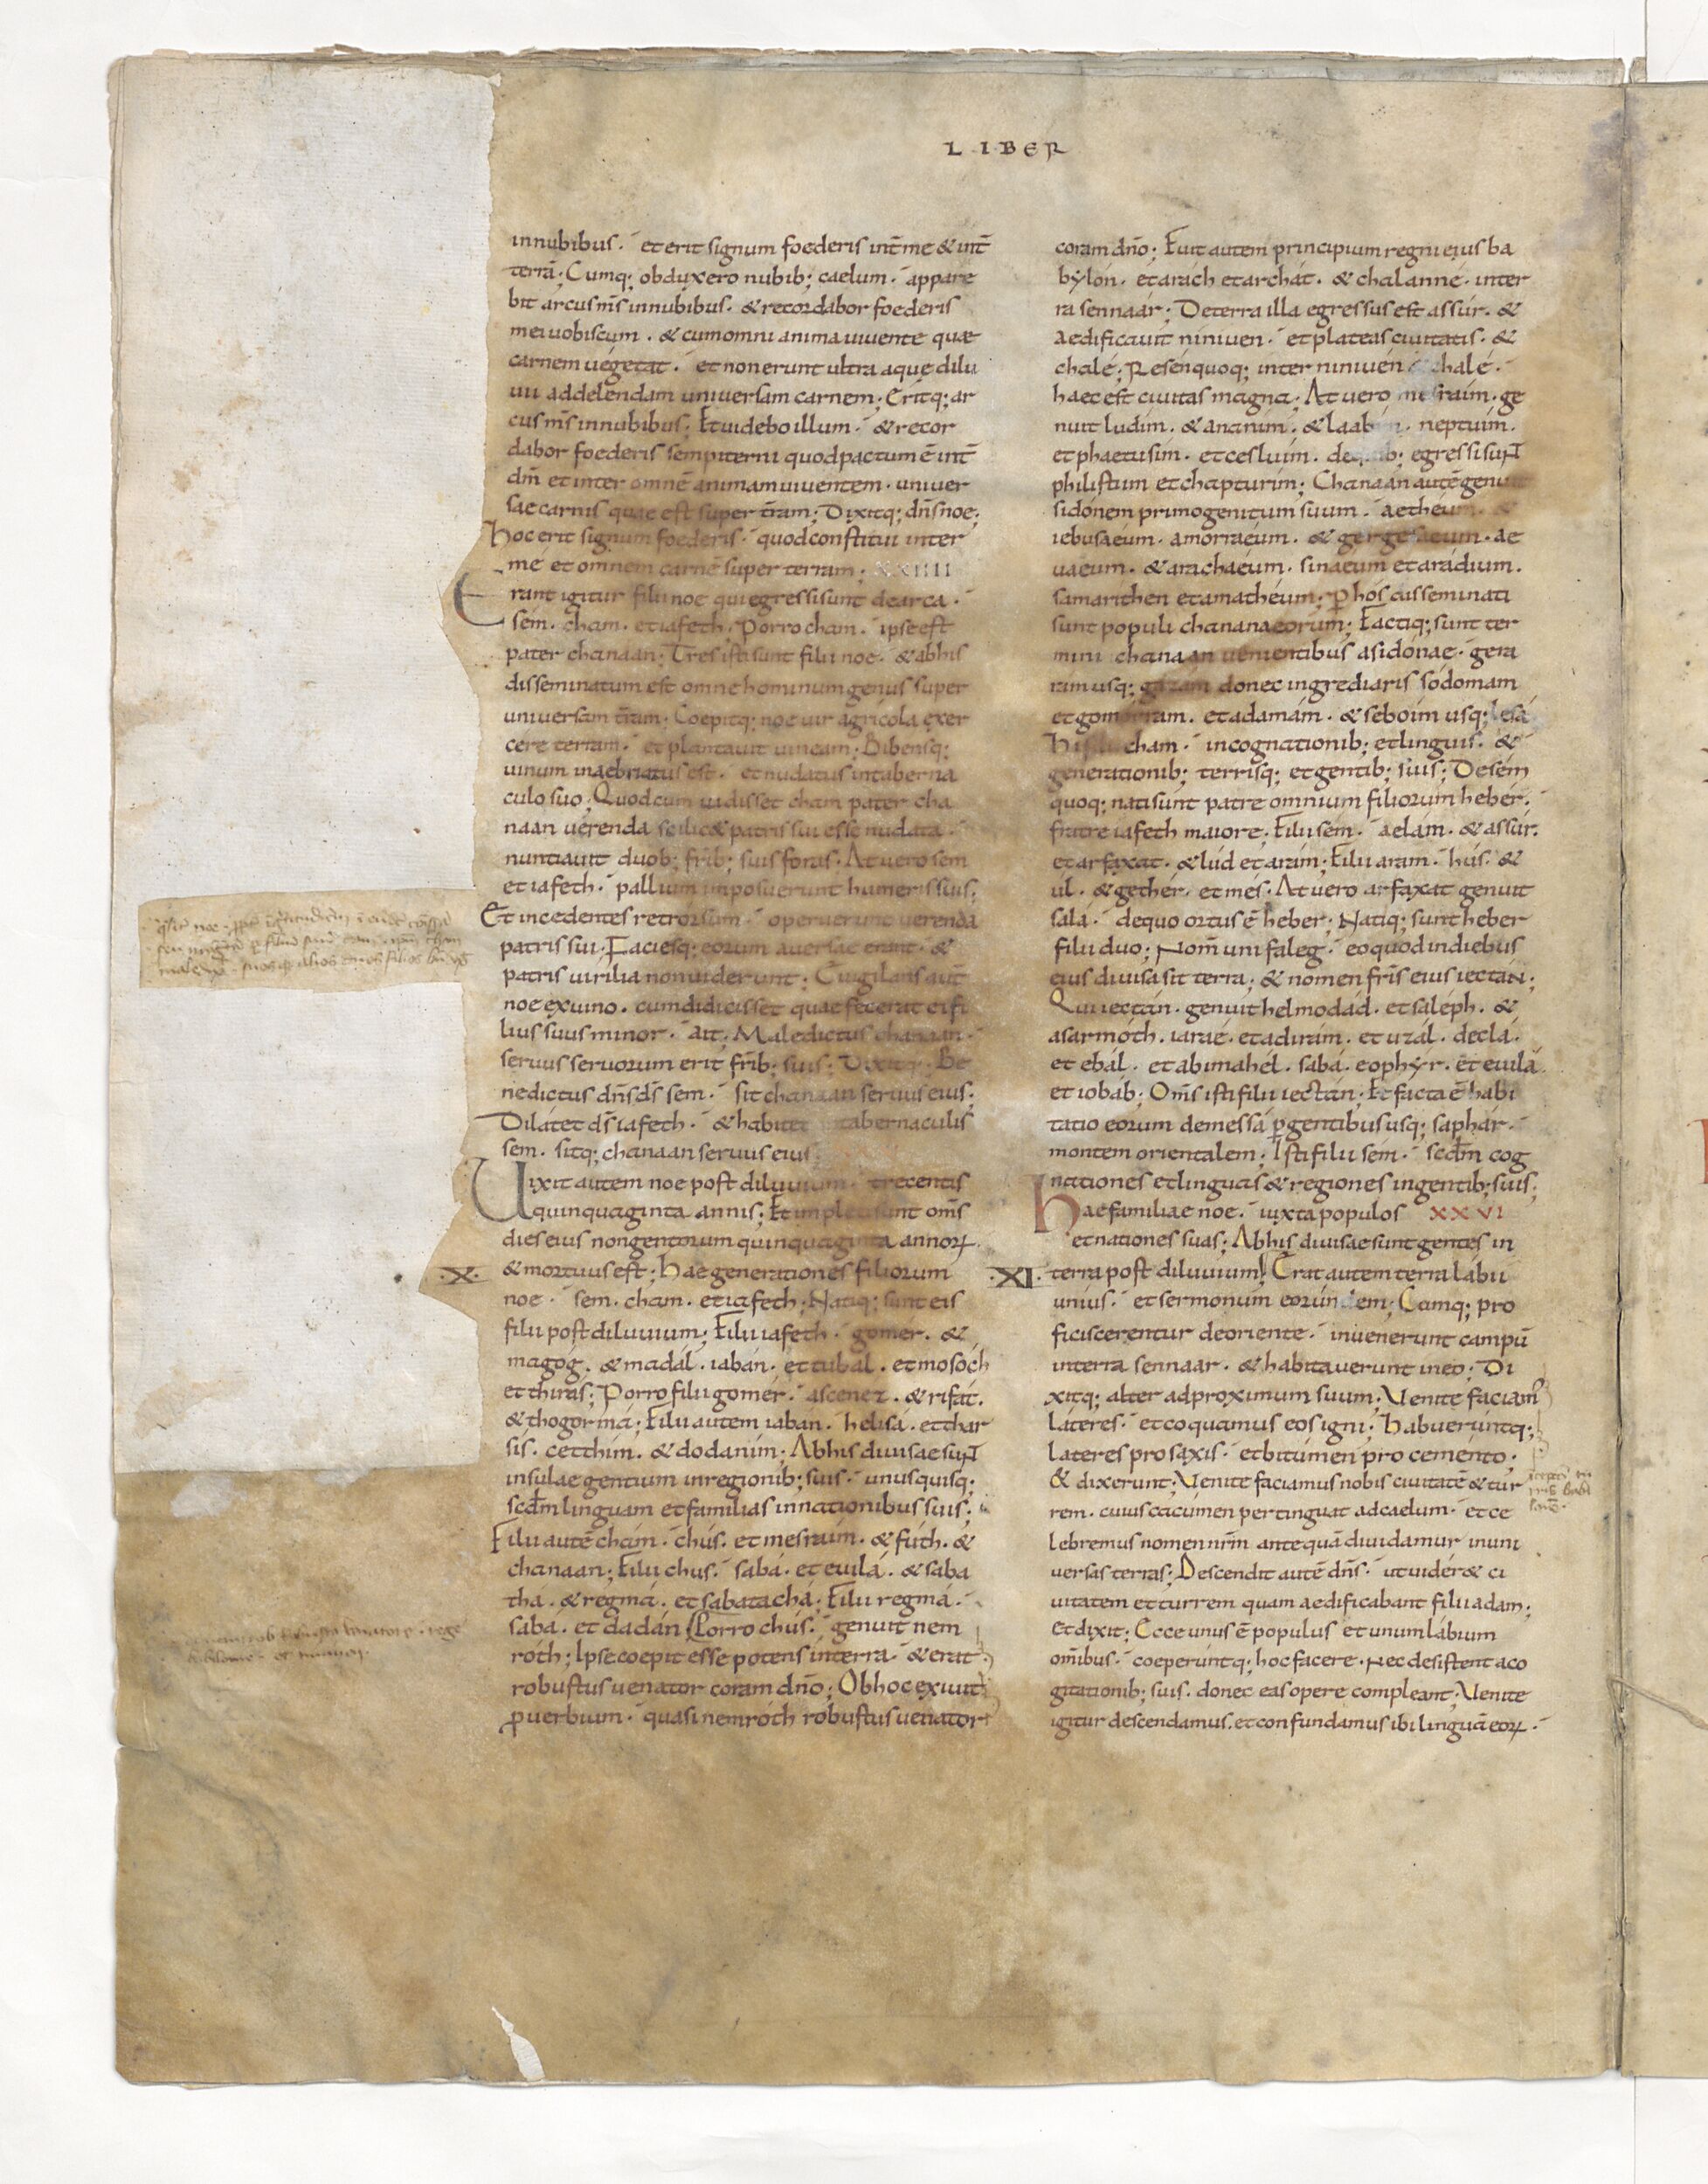 LIBER
in nubibus. et erit signum foederis int̄ me & int̄
terrā; Cumq; obduxero nubib; caelum. appare
bit arcus m̄s in nubibus. & recordabor foederis
mei uobiscum. & cum omni anima uiuente quae
carnem uégetat. et non erunt ultra aque dilu
uii ad delendam uniuersam carnem; Eritq; ar
cus m̄s in nubibus; Et uidebo illum. & recor
dabor foederis sempiterni quod pactum ē int̄
dm̄ et inter omnē animam uiuentem. uniuer
sae carnis quae est super t̄ram; Dixitq; dn̄s noe;
Hoc erit signum foederis. quod constitui inter
mé et omnem carnē super terram; XXIIII
Erant igitur filii noe qui egressi sunt de arca.
sém. cham. et iafeth. Porro cham. ipse est
pater chanaan; Tres isti sunt filii noe. & ab his
disseminatum est omne hominum genus super
uniuersam t̄ram; Coepitq; noe uir agricola exer
cére terram. et plantauit uineam; Bibensq;
uinum inaebriatus est. et nudatus in taberna
culo suo; Quod cum uidisset cham pater cha
naan uérenda scilic& patris sui esse nudata.
nuntiauit duob; fr̄ib; suis foras. At uero sem
et iafeth. pallium imposuerunt humeris suis;
Et incedentes retrorsum. operuerunt uerenda
patris sui. Faciesq; eorum auersae erant. &
patris uirilia non uiderunt; Euigilans aut̄
noe ex uino. cum didicisset quae fecerat ei fi
lius suus minor. ait; Maledictus chanaan.
seruus seruorum erit fr̄ib; suis; Dixitq; Be
nedictus dn̄s ds̄ sem. sit chanaan seruus eius;
Dilátet ds̄ iafeth. & habitet tabernaculis
sem. sitq; chanaan seruus eius
Uixit autem noe post diluuium. trecentis
quinquaginta annis; Et impleti sunt om̄s
dies eius nongentorum quinquaginta annoꝝ.
·X· & mortuus est; Hae generationes filiorum
noe. sem. cham. et iafeth; Natiq; sunt eis
filii post diluuium; Filii iafeth. gomér. &
magóg. & madál. iaban. et tubál. et mosóch
et thirás; Porro filii gomér. ascenez. & rifát.
& thogormá; Filii autem iaban. helisá. et thar
sis. cetthim. & dodanim; Ab his diuisae sunt
insulae gentium in regionib; suis. unusquisq;
scdm̄ linguam et familias in nationibus suis;
Filii autē chám. chús. et mesraim. & fúth. &
chanaan; Filii chus. sabá. et euilá. & saba
thá. & regmá. et sabatachá; Filii regmá.
sabá. et dadán; Porro chús. genuit nem
róth; Ipse coepit esse potens in terra. & erat
robustus uenator coram dn̄o; Ob hoc exiuit
ꝓuerbium. quasi nemróth robustus uenator
coram dn̄o; Fuit autem principium regni eius ba
bylón. et arach et archát. & chalanné. in ter
ra sennaár; De terra illa egressus est assúr. &
aedificauit niniuen. et plateas ciuitatis. &
chalé; Resén quoq; inter niniuén & chalé.
haec est ciuitas magna; At uero mesraim. ge
nuit ludim. & ananim. & laabim. neptuim.
et phaetusim. et cesluim. de quib; egressi sunt
philistiim et chapturim; Chanaan autē genuit
sidónem primogenitum suum. aetheum. &
iebusaeum. amorraeum. & gergesaeum. ae
uaeum. & arachaeum. sinaeum et arádium.
samarithen et amathéum; P̄ hós cusseminati
sunt populi chananaeorum; Factiq; sunt ter
mini chanaan uenientibus a sidónae. gera
ram usq; gazam donec ingrediaris sodomam
et gomorram. et adamám. & seboim usq; lesa
Hi filii cham. in cognationib; et linguis. &
generationib; terrisq; et gentib; suis; De sém
quoq; nati sunt patre omnium filiorum hebér.
fratre iafeth maiore. Filii sém. aelám. & assúr.
et arfaxat. & lúd et arám; Filii aram. hús. &
ul. & gethér. et més. At uero arfaxat genuit
salá. de quo ortus ē heber; Natiq; sunt heber
filii duo; Nom̄ uni faleg. eo quod in diebus
eius diuisa sit terra; & nomen fr̄is eius iectán;
Qui iectán. genuit helmodád. et saléph. &
asarmóth. iaraé. et adirám. et uzál. declá.
et ebál. et abimahél. sabá. eophyr. et euilá
et iobab; Om̄s isti filii iectán; Et facta ē habi
tatio eorum de messá ꝑgentibus usq; saphár.
montem orientalem; Isti filii sém. scdm̄ cog
nationes et linguas & regiones in gentib; suis;
Hae familiae noe. iuxta populos XXVI
et nationes suas; Ab his diuisae sunt gentes in
·XI· terra post diluuium; Erat autem terra labii
unius. et sermonum eorundem; Cumq; pro
ficiscerentur de oriente. inuenerunt campū
in terra sennaar. & habitauerunt in eo; Di
xitq; alter ad proximum suum; Uenite faciam
láteres. et coquamus eos igni; Habueruntq;
lateres pro saxis. et bitúmen pro cemento;
& dixerunt; Uenite faciamus nobis ciuitatē & tur
rem. cuius cacúmen pertinguat ad caelum. et ce
lebremus nomen nr̄m antequā diuidamur in uni
uersas terras; Descendit autē dn̄s. ut uider& ci
uitatem et turrem quam aedificabant filii adam;
Et dixit; Ecce unus ē populus et unum lábium
om̄ibus. coeperuntq; hoc facere. Nec desistent a co
gitationib; suis. donec eas opere compleant; Uenite
igitur descendamus. et confundamus ibi linguā eoꝝ.